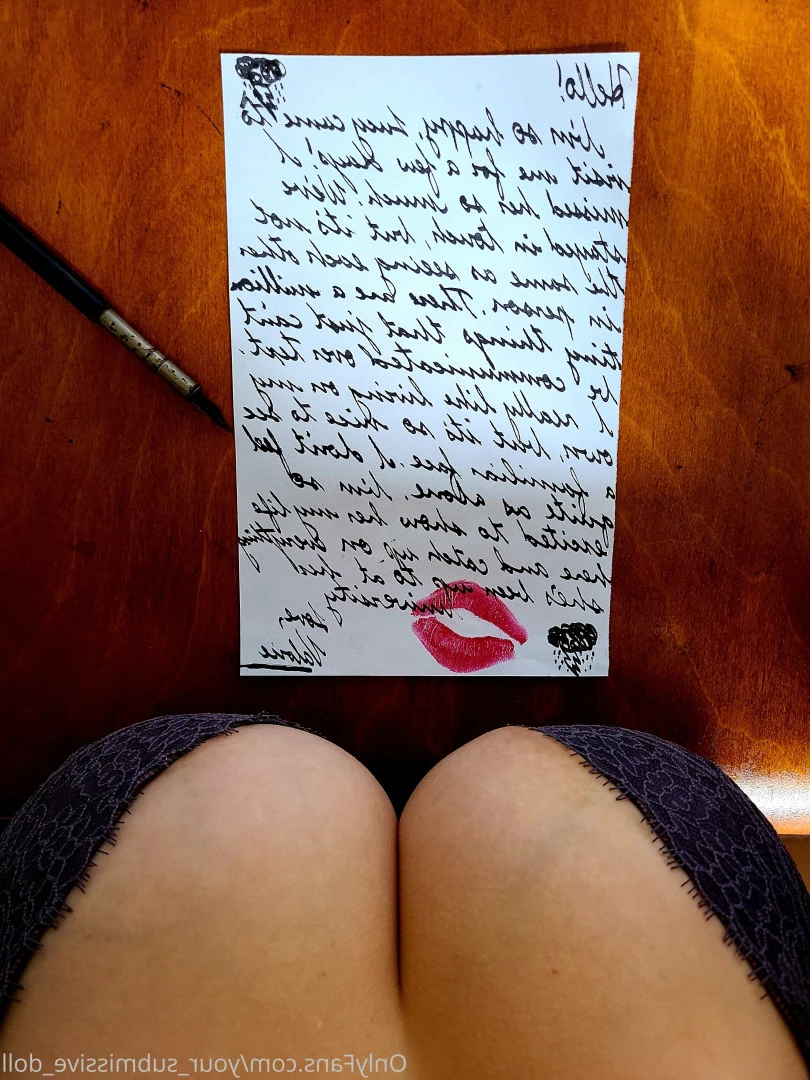 Hello!
I'm so happy, they came to
visit me for a few days! I
missed her so much! We've
stayed in touch, but it's not
the same as seeing each other
in person. There are a million
tiny things that just can't
be communicated over text.
I really like living on my
own, but it's so nice to see
a familiar face. I don't feel
quite as alone. I'm so
excited to show her my life
here and catch up on everything
she's been up to at her
university
Love,
Valorie
OnlyFans.com/your_submissive_doll